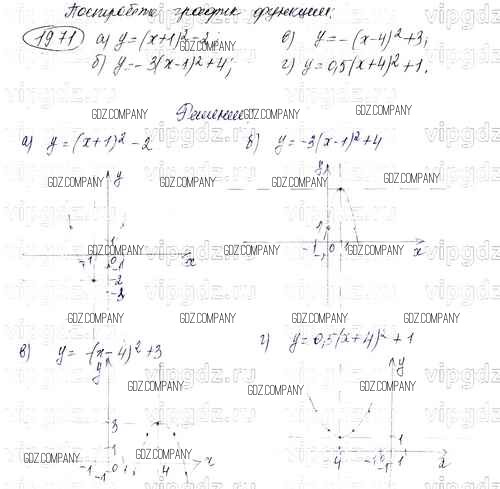 Постройте график функции:
1971 а) y = (x+1)² - 2; в) y = -(x-4)² + 3;
б) y = -3(x-1)² + 4; г) y = 0,5(x+4)² + 1.
GDZ.COMPANY
Решение:
а) y = (x+1)² - 2 б) y = -3(x-1)² + 4
y y
1 1
-1 0 1 x -1 0 1 x
-2
-3
в) y = -(x-4)² + 3 г) y = 0,5(x+4)² + 1
y y
3
1 1
-1 0 1 4 x -4 -1 0 1 x
-1 -1
vipgdz.ru